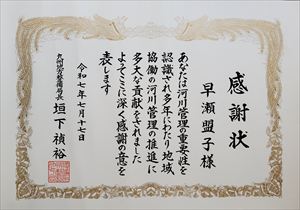 感謝状
早瀬盟子様
あなたは河川管理の重要性を
認識され多年にわたり地域
協働の河川管理の推進に
多大な貢献をされました
よってここに深く感謝の意を
表します
令和七年七月十七日
九州地方整備局長
垣下禎裕